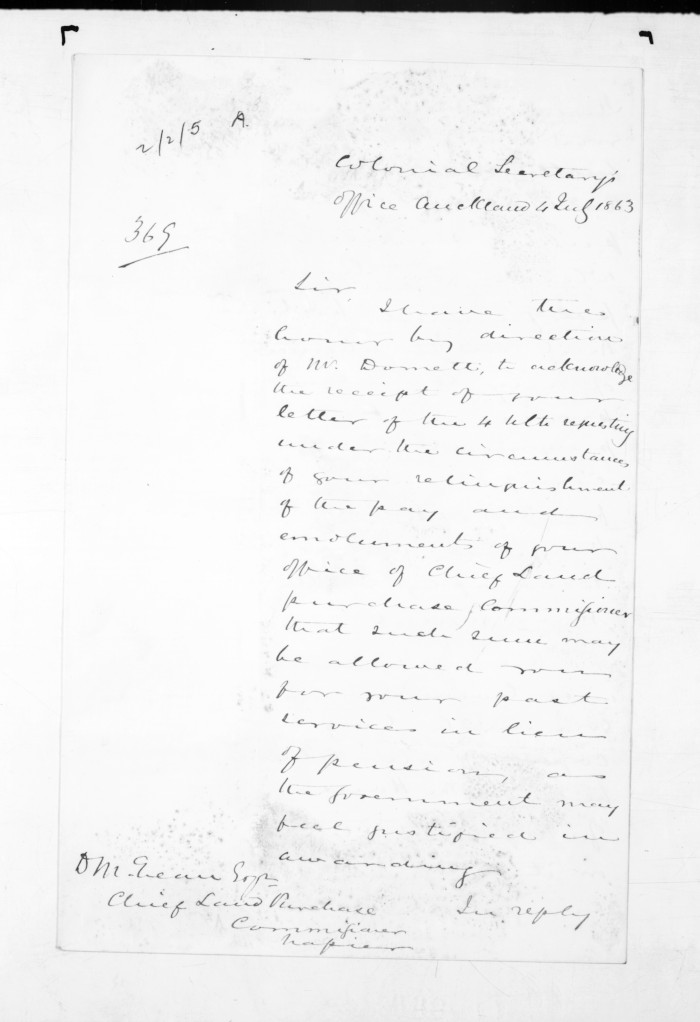 2/2/5 A.
Colonial Secretary's
Office Auckland 4 July 1863
369
Sir,
I have the
honor by direction
of Mr. Domett, to acknowledge
the receipt of your
letter of the 4 requesting
under the circumstances
of your relinquishment
of the pay and
emoluments of your
office of Chief Land
purchase Commissioner
that such sum may
be allowed you
for your past
services in lieu
of pension, as
the Government may
feel justified in
awarding
In reply
D McLean Esqr
Chief Land Purchase
Commissioner
Napier